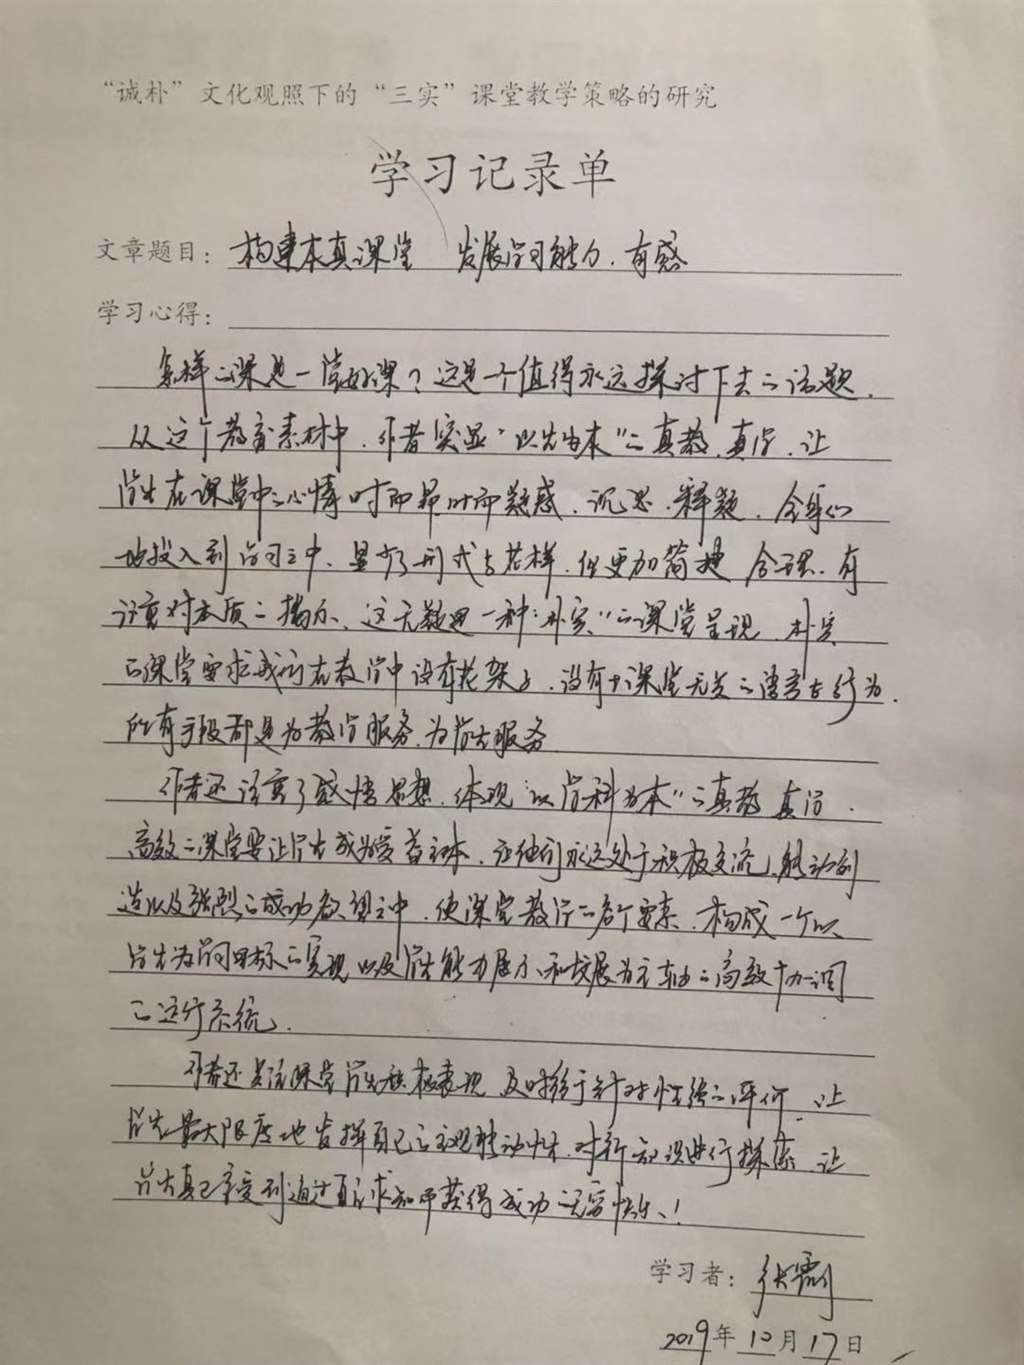 “诚朴”文化观照下的“三实”课堂教学策略的研究
学习记录单
文章题目：构建本真课堂 发展学习能力.有感
学习心得：
怎样的课是一堂好课？这是一个值得永远探讨下去的话题.
从这个教育素材中.作者突显“以生为本”的真教.真学.让
学生在课堂中的心情时而昂时而疑惑.沉思.释题.全身心
地投入到学习之中.虽少了形式与花样.但更加简捷 合理.有
注重对本质的揭示、这无疑是一种“朴实”的课堂呈现.朴实
的课堂要求我们在教学中没有花架子.没有与课堂无关的语言与行为.
所有手段都是为教学服务.为学生服务
作者还注重了感悟思想.体现“以学科为本”的真教 真学.
高效的课堂要让学生成为学习主体.让他们永远处于积极交流、能动创
造以及强烈的成功欲望之中.使课堂教学的各个要素.构成一个以
学生为学习目标的实现以及学生能力展示和发展为主轴的高效协调
的运行系统.
作者还关注课堂学生积极表现 及时给于针对性强的评价.让
学生最大限度地发挥自己的主观能动性.对新知识进行探索 让
学生真正享受到通过自己求知而获得成功的无穷快乐、！
学习者：张霞
2019年10月17日